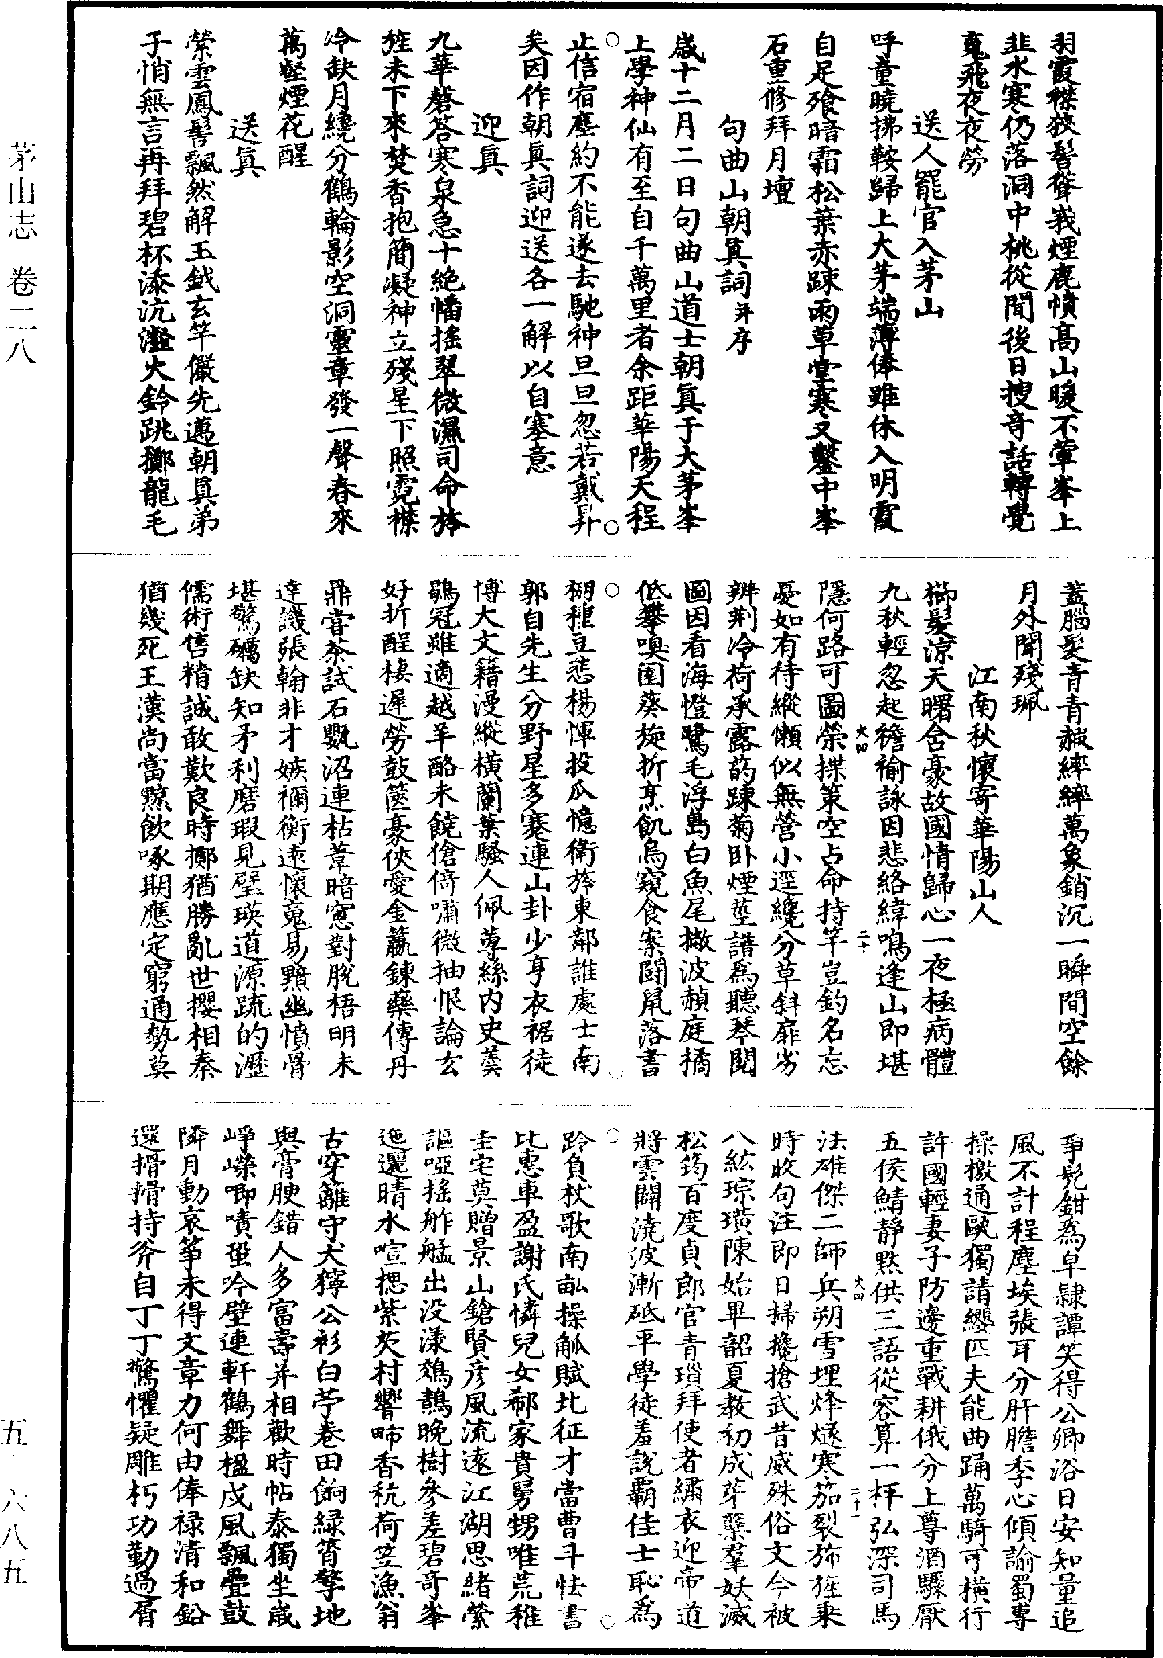 羽霞襟狹髻聳峩煙鹿幘高山暖不葷峯上
韭水寒仍落洞中桃從聞後日搜奇話轉覺
䰟飛夜夜勞
送人罷官入茅山
呼童曉拂鞍歸上大茅端薄俸雖休入明霞
自足飡暗霜松葉赤踈雨草堂寒又鑿中峯
石重修拜月壇
句曲山朝真詞并序
歲十二月二日句曲山道士朝真于大茅峯
上學神仙有至自千萬里者余距華陽天程
止信宿塵約不能遂去馳神旦旦忽若戴昇
矣因作朝真詞迎送各一解以自塞意
迎真
九華磬荅寒泉急十絶幡搖翠微濕司命旂
旌未下來焚香抱簡凝神立殘星下照霓襟
冷缺月繞分鶴輪影空洞靈章發一聲春來
萬壑煙花醒
送真
縈雲鳳髻飄然解玉鉞玄竿儼先邁朝真弟
子悄無言再拜碧杯添沆瀣火鈴跳擲龍毛
蓋腦髮青青𧹞䌟䌟萬象銷沉一瞬間空餘
月外聞殘珮
江南秋懷寄華陽山人
櫛髮涼天曙含豪故國情歸心一夜極病體
九秋輕忽起襜褕詠因悲絡緯鳴逢山即堪
隱何路可圖榮揲策空占命持竿豈釣名忘
憂如有待縱懶似無營小逕纔分草斜扉劣
辨荆冷荷承露菂踈菊卧煙莖譜爲聽琴閱
圖因看海憕鷺毛浮島白魚尾撇波赬庭橘
低攀嗅園葵旋折烹飢烏窺食案鬪鼠落書
棚種豆悲楊惲投瓜憶衛旌東鄰誰處士南
郭自先生分野星多蹇連山卦少亨衣裾徒
博大文籍漫縱橫蘭葉騷人佩蓴絲內史羹
鶡冠雖適越羊酪未饒傖倚嘯微抽恨論玄
好折酲棲遲勞鼓篋豪俠愛金籝鍊藥傳丹
鼎甞茶試石甖沼連枯葦暗窻對脫梧明未
達譏張翰非才嫉禰衡遠懷䰟易黯幽憤骨
堪驚礪缺知矛利磨瑕見璧瑛道源疏的瀝
儒術售精誠敢歎良時擲猶勝亂世攖相秦
猶幾死王漢尚當黥飲啄期應定窮通勢莫
爭髡鉗爲皁隷譚笑得公卿浴日安知量追
風不計程塵埃張耳分肝膽季心傾諭蜀專
操檄通甌獨請纓匹夫能曲踊萬騎可橫行
許國輕妻子防邊重戰耕俄分上尊酒驟厭
五侯鯖靜默供三語從容算一枰弘深司馬
法雄傑二師兵朔雪埋烽燧寒笳裂旆旌乗
時收句注即日掃欃搶武昔威殊俗文今被
八紘琮璜陳始畢韶夏教初成芽蘗羣妖滅
松筠百度貞郎官青瑣拜使者繡衣迎帝道
將雲闢澆波漸砥平學徒羞說霸佳士恥爲
跉負杖歌南畝操觚賦北征才當曹斗怯書
比惠車盈謝氏憐兒女郗家貴舅甥唯荒稚
圭宅莫贈景山鎗賢彦風流遠江湖思緒縈
謳啞搖舴艋出没漾鵁鶄晚樹參差碧奇峯
迤邐晴水喧揌紫芡村響㭈香秔荷笠漁翁
古穿籬守犬獰公衫白苧卷田餉綠筲擎地
與膏腴錯人多富壽并相歡時帖泰獨坐歳
崢嶸唧嘖蛩吟壁連軒鶴舞楹戍風飄疊鼓
隣月動哀箏未得文章力何由俸禄清和鉛
還搰搰持斧自丁丁驚懼疑雕朽功勤過屑
大四
二十
大四
二十一
茅山志　卷二八
五　六八五